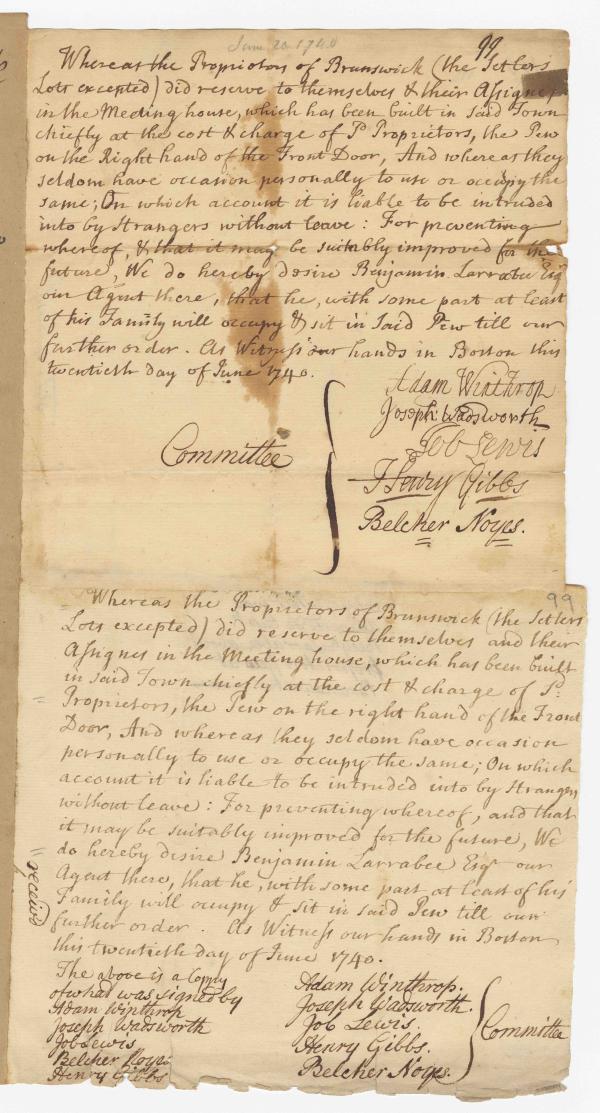 June 20 1740
99
Whereas the Proprietors of Brunswick (the Setlers
Lots excepted) did reserve to themselves & their Assignes
in the Meeting house, which has been built in said Town
chiefly at the cost & charge of Sd Proprietors, the Pew
on the Right hand of the Front Door, And whereas they
seldom have occasion personally to use or occupy the
same; On which account it is liable to be intruded
into by Strangers without leave: For preventing
whereof, & that it may be suitably improved for the
future, We do hereby desire Benjamin Larrabee Esqr
our Agent there, that he, with some part at least
of his Family will occupy & sit in said Pew till our
further order. As Witness our hands in Boston this
twentieth day of June 1740.
Adam Winthrop
Joseph Wadsworth
Job Lewis
Committee
Henry Gibbs
Belcher Noyes.
99
Whereas the Proprietors of Brunswick (the Setlers
Lots excepted) did reserve to themselves and their
Assignes in the Meeting house, which has been built
in said Town chiefly at the cost & charge of Sd
Proprietors, the Pew on the right hand of the Front
Door, And whereas they seldom have occasion
personally to use or occupy the same; On which
account it is liable to be intruded into by Strangers
without leave: For preventing whereof, and that
it may be suitably improved for the future, We
do hereby desire Benjamin Larrabee Esqr our
Agent there, that he, with some part at least of his
Family will occupy & sit in said Pew till our
further order. As Witness our hands in Boston
this twentieth day of June 1740.
received
The above is a Coppy
of what was signed by
Adam Winthrop
Joseph Wadsworth
Job Lewis
Belcher Noyes
Henry Gibbs
Adam Winthrop.
Joseph Wadsworth.
Job Lewis.
Henry Gibbs.
Belcher Noyes.
Committee